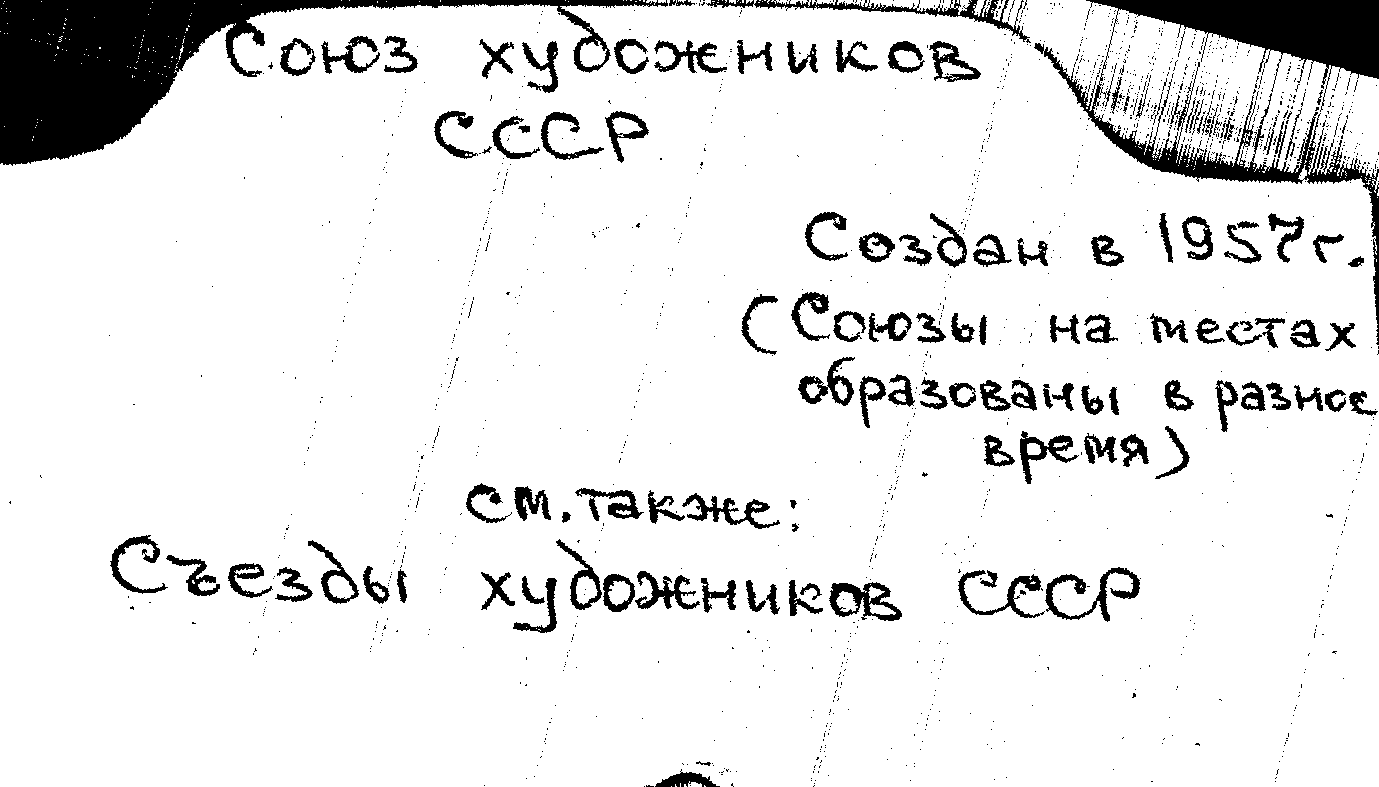 Союз художников
СССР
Создан в 1957г.
(Союзы на местах
образованы в разное
время)
см. также:
Съезды художников СССР